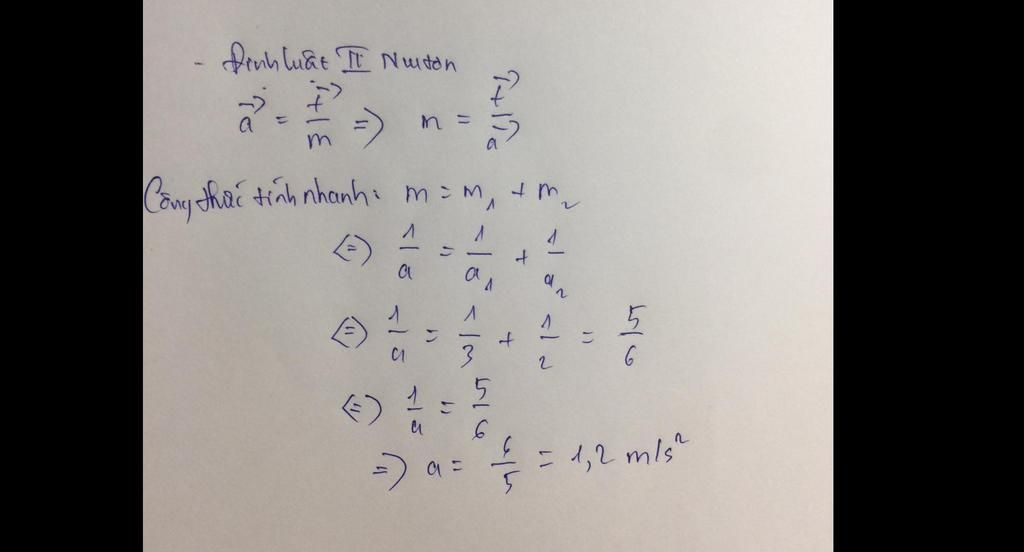 - Định luật II Newton
a⃗ = F⃗/m => m = F⃗/a⃗
Công thức tính nhanh: m = m₁ + m₂
<=> 1/a = 1/a₁ + 1/a₂
<=> 1/a = 1/3 + 1/2 = 5/6
<=> 1/a = 5/6
=> a = 6/5 = 1,2 m/s²